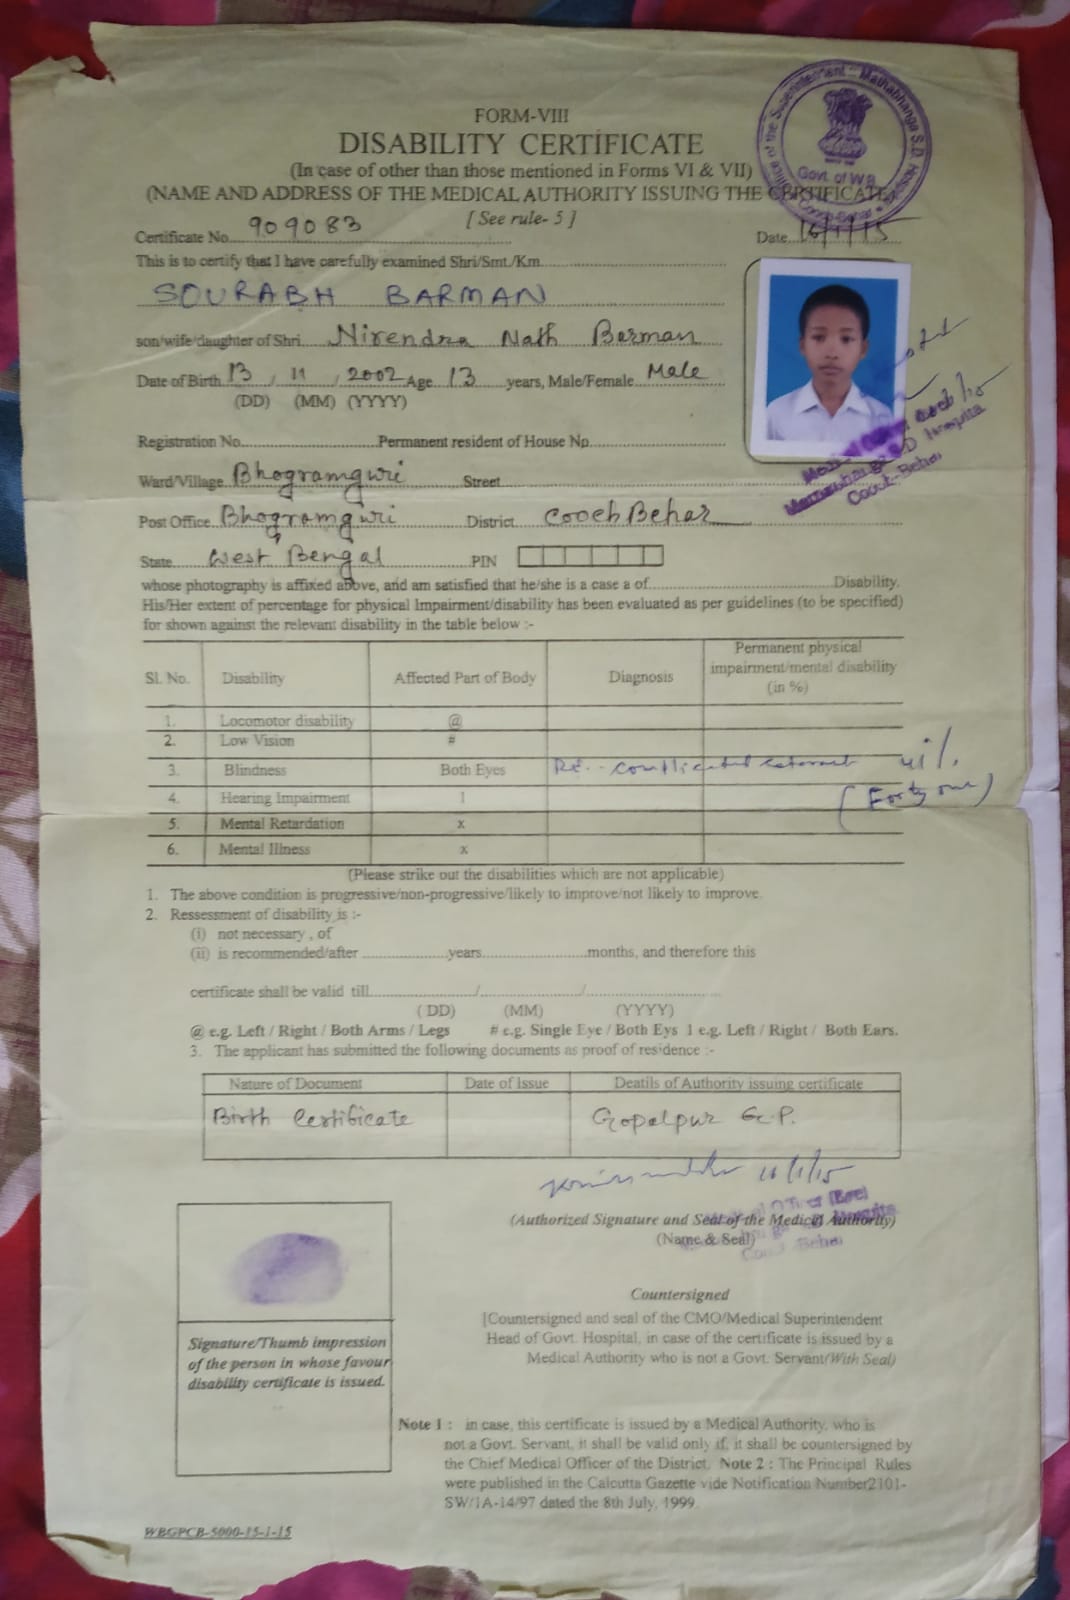 FORM-VIII
DISABILITY CERTIFICATE
(In case of other than those mentioned in Forms VI & VII)
(NAME AND ADDRESS OF THE MEDICAL AUTHORITY ISSUING THE CERTIFICATE)
[ See rule- 5 ]
Office of the Superintendent Mathabhanga S.D. Hospital Cooch-Behar
Govt. of W.B
Certificate No. 909083 Date 16/1/15
This is to certify that I have carefully examined Shri/Smt./Km.
SOURABH BARMAN
son/wife/daughter of Shri. Nirendra Nath Barman
Date of Birth 13 / 11 / 2002 Age 13 years, Male/Female Male
(DD) (MM) (YYYY)
Registration No. Permanent resident of House No.
Ward/Village Bhogramguri Street
Post Office Bhogramguri District CoochBehar
Cooch-Behar
State West Bengal PIN
whose photography is affixed above, and am satisfied that he/she is a case a of Disability.
His/Her extent of percentage for physical Impairment/disability has been evaluated as per guidelines (to be specified)
for shown against the relevant disability in the table below :-
Sl. No. Disability Affected Part of Body Diagnosis Permanent physical impairment/mental disability (in %)
1. Locomotor disability @
2. Low Vision #
3. Blindness Both Eyes 41%
4. Hearing Impairment 1 (Forty one)
5. Mental Retardation x
6. Mental Illness x
(Please strike out the disabilities which are not applicable)
1. The above condition is progressive/non-progressive/likely to improve/not likely to improve.
2. Ressessment of disability is :-
(i) not necessary , of
(ii) is recommended/after years months, and therefore this
certificate shall be valid till / /
( DD) (MM) (YYYY)
@ e.g. Left / Right / Both Arms / Legs # e.g. Single Eye / Both Eys 1 e.g. Left / Right / Both Ears.
3. The applicant has submitted the following documents as proof of residence :-
Nature of Document Date of Issue Deatils of Authority issuing certificate
Birth Certificate Gopalpur G.P.
16/1/15
(Authorized Signature and Seal of the Medical Authority)
(Name & Seal)
Countersigned
[Countersigned and seal of the CMO/Medical Superintendent
Head of Govt. Hospital, in case of the certificate is issued by a
Medical Authority who is not a Govt. Servant(With Seal)
Signature/Thumb impression
of the person in whose favour
disability certificate is issued.
Note 1 : in case, this certificate is issued by a Medical Authority, who is
not a Govt. Servant, it shall be valid only if, it shall be countersigned by
the Chief Medical Officer of the District. Note 2 : The Principal Rules
were published in the Calcutta Gazette vide Notification Number2101-
SW/1A-14/97 dated the 8th July, 1999.
WBGPCB-5000-15-1-15